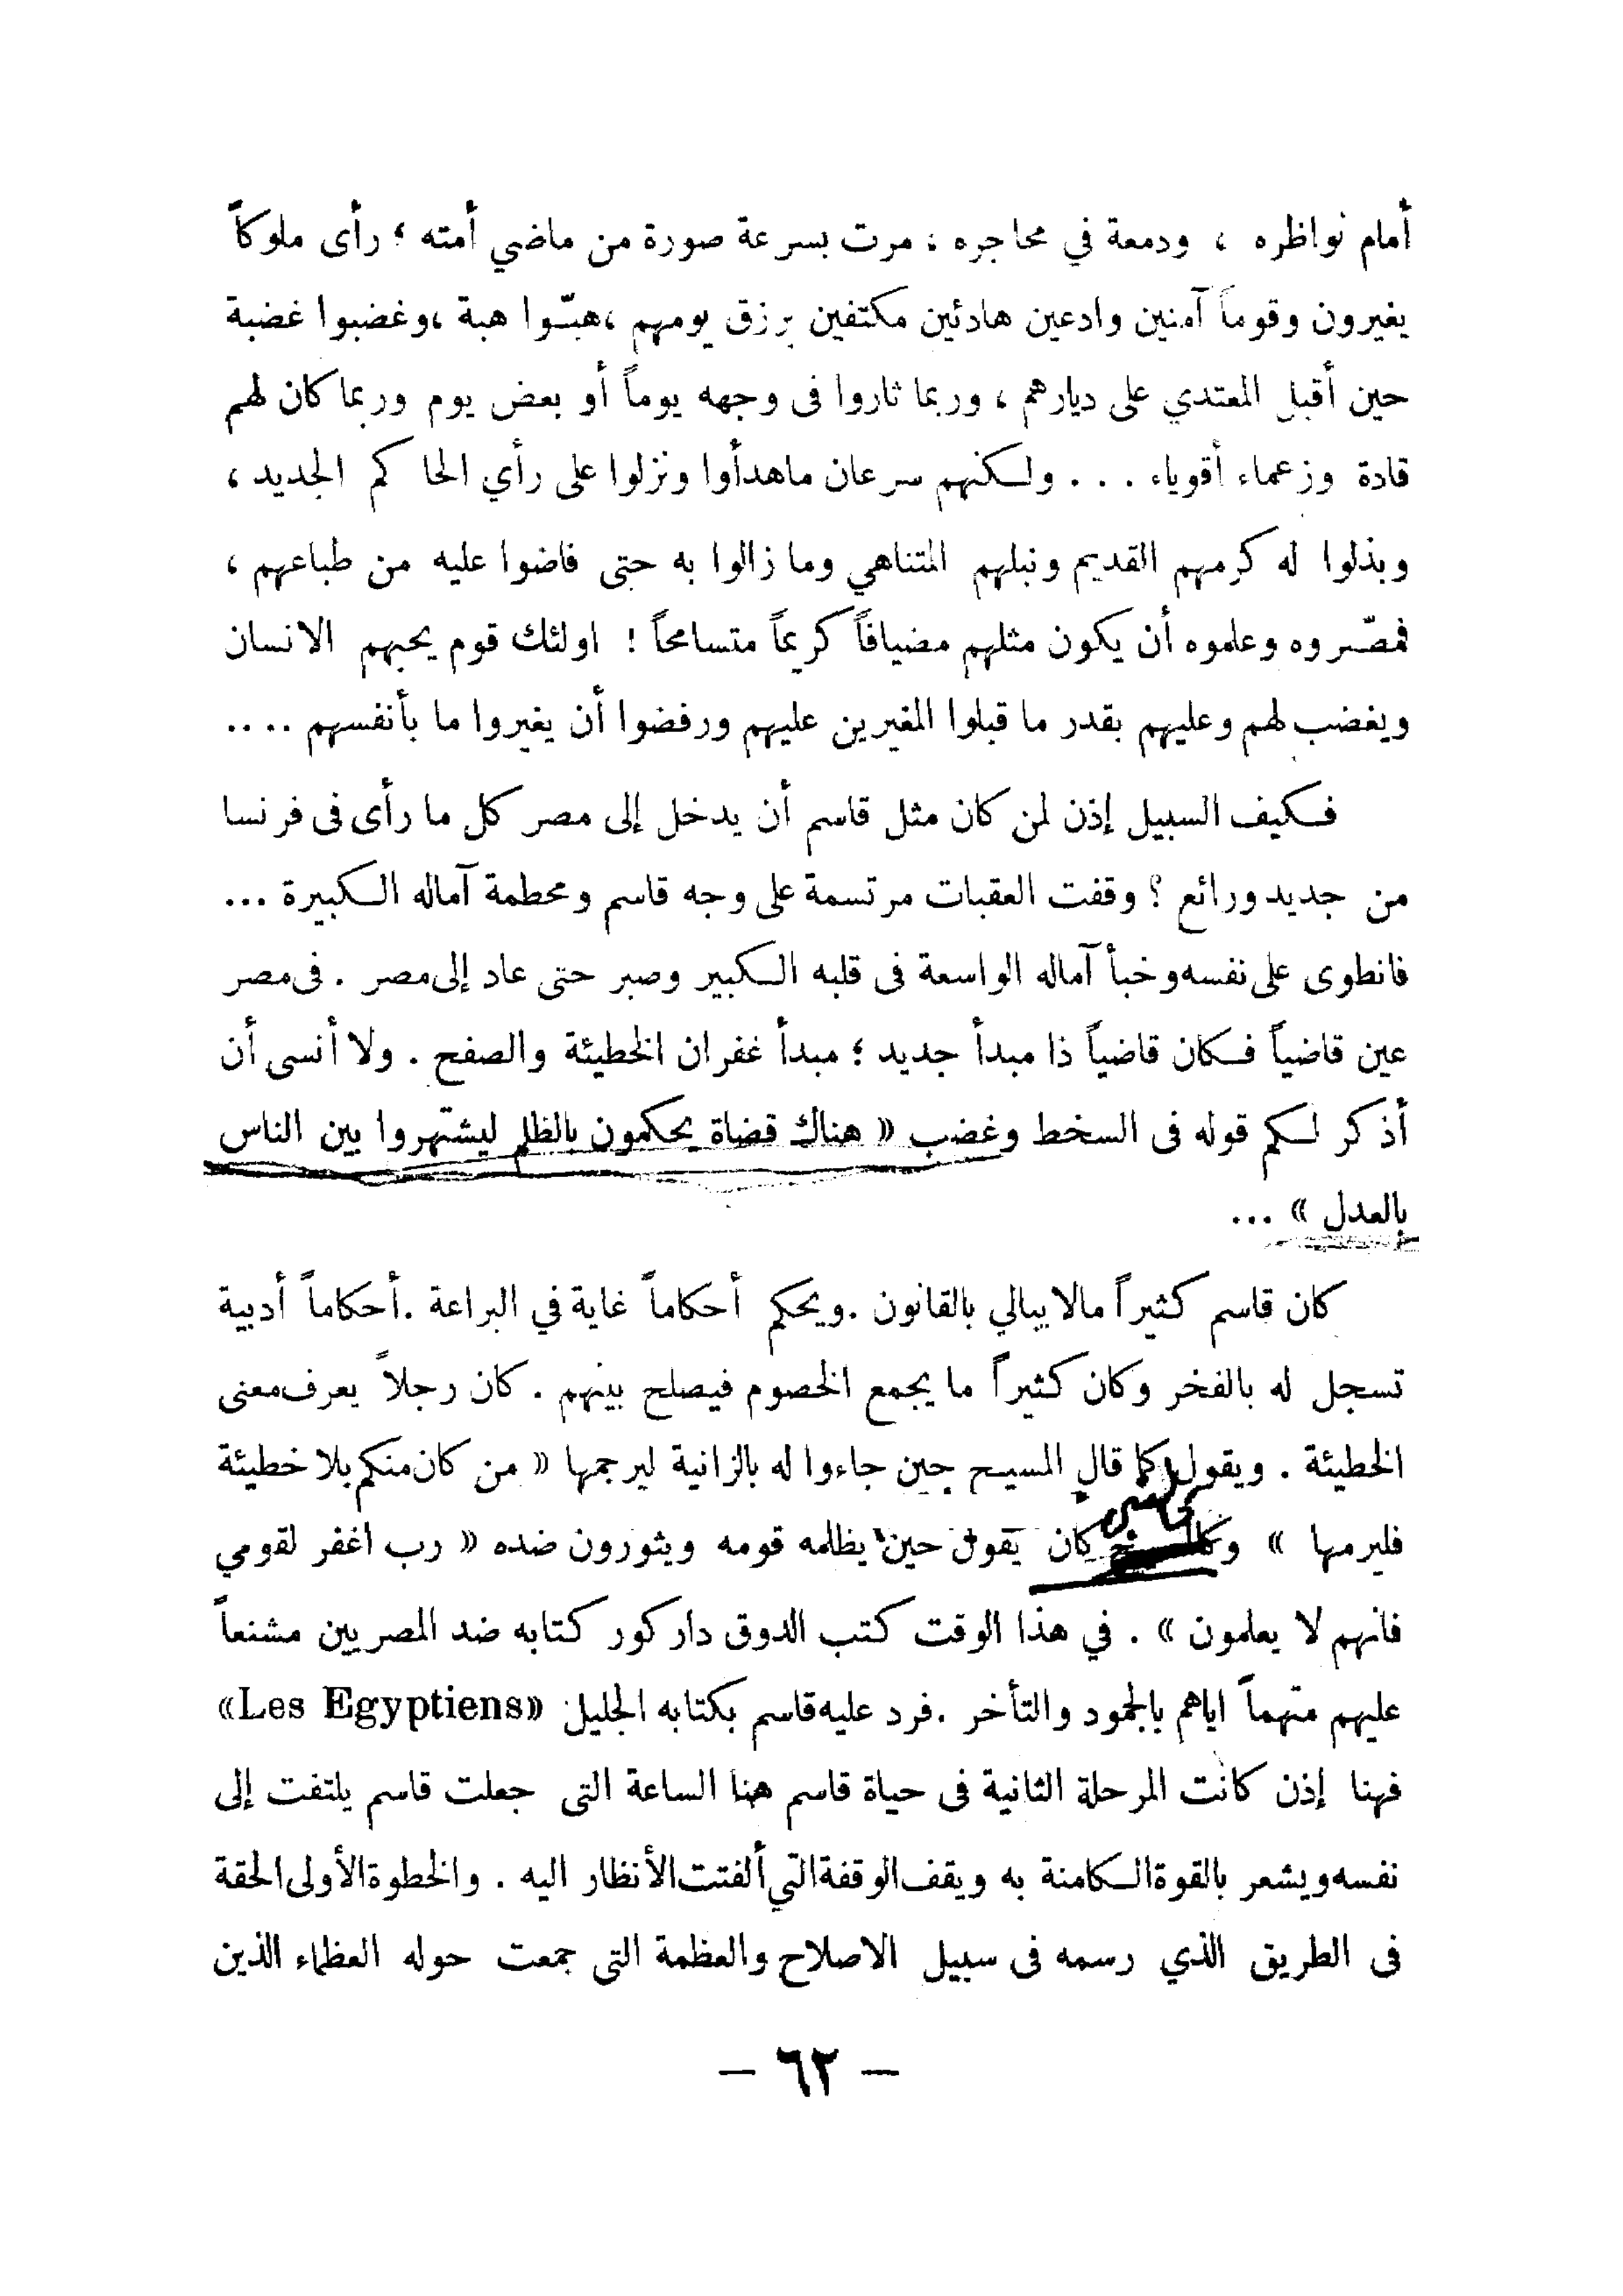 أمام نواظره ، ودمعة في محاجره ؛ مرت بسرعة صورة من ماضي أمته ؛ رأى ملوكاً
يغيرون وقوماً آمنين وادعين هادئين مكتفين برزق يومهم ،هبّوا هبة ،وغضبوا غضبة
حين أقبل المعتدي على ديارهم ، وربما ثاروا فى وجهه يوماً أو بعض يوم وربما كان لهم
قادة وزعماء أقوياء . . . ولكنهم سرعان ماهدأوا ونزلوا على رأي الحاكم الجديد ،
وبذلوا له كرمهم القديم ونبلهم المتناهي وما زالوا به حتى فاضوا عليه من طباعهم ،
فمصّروه وعلموه أن يكون مثلهم مضيافاً كريماً متسامحاً ! اولئك قوم يحبهم الانسان
ويغضب لهم وعليهم بقدر ما قبلوا المغيرين عليهم ورفضوا أن يغيروا ما بأنفسهم ....
فكيف السبيل إذن لمن كان مثل قاسم أن يدخل إلى مصر كل ما رأى فى فرنسا
من جديد ورائع ؟ وقفت العقبات مرتسمة على وجه قاسم ومحطمة آماله الكبيرة ...
فانطوى على نفسه وخبأ آماله الواسعة فى قلبه الكبير وصبر حتى عاد إلى مصر . فى مصر
عين قاضياً فكان قاضياً ذا مبدأ جديد ؛ مبدأ غفران الخطيئة والصفح . ولا أنسى أن
أذكر لكم قوله فى السخط وغضب « هناك قضاة يحكمون بالظلم ليشتهروا بين الناس
بالعدل » ...
كان قاسم كثيراً مالا يبالي بالقانون .ويحكم أحكاماً غاية في البراعة .أحكاماً أدبية
تسجل له بالفخر وكان كثيراً ما يجمع الخصوم فيصلح بينهم . كان رجلاً يعرف معنى
الخطيئة . ويقول كما قال المسيح حين جاءوا له بالزانية ليرجمها « من كان منكم بلا خطيئة
فليرمها » كان يقول حين يظلمه قومه ويثورون ضده « رب اغفر لقومي
فانهم لا يعلمون » . في هذا الوقت كتب الدوق داركور كتابه ضد المصريين مشنعاً
عليهم متهماً اياهم بالجمود والتأخر .فرد عليه قاسم بكتابه الجليل «Les Egyptiens»
فهنا إذن كانت المرحلة الثانية فى حياة قاسم هنا الساعة التى جعلت قاسم يلتفت إلى
نفسه ويشعر بالقوة الكامنة به ويقف الوقفة التي ألفتت الأنظار اليه . والخطوة الأولى الحقة
فى الطريق الذي رسمه فى سبيل الاصلاح والعظمة التى جمعت حوله العظماء الذين
– ٦٢ –